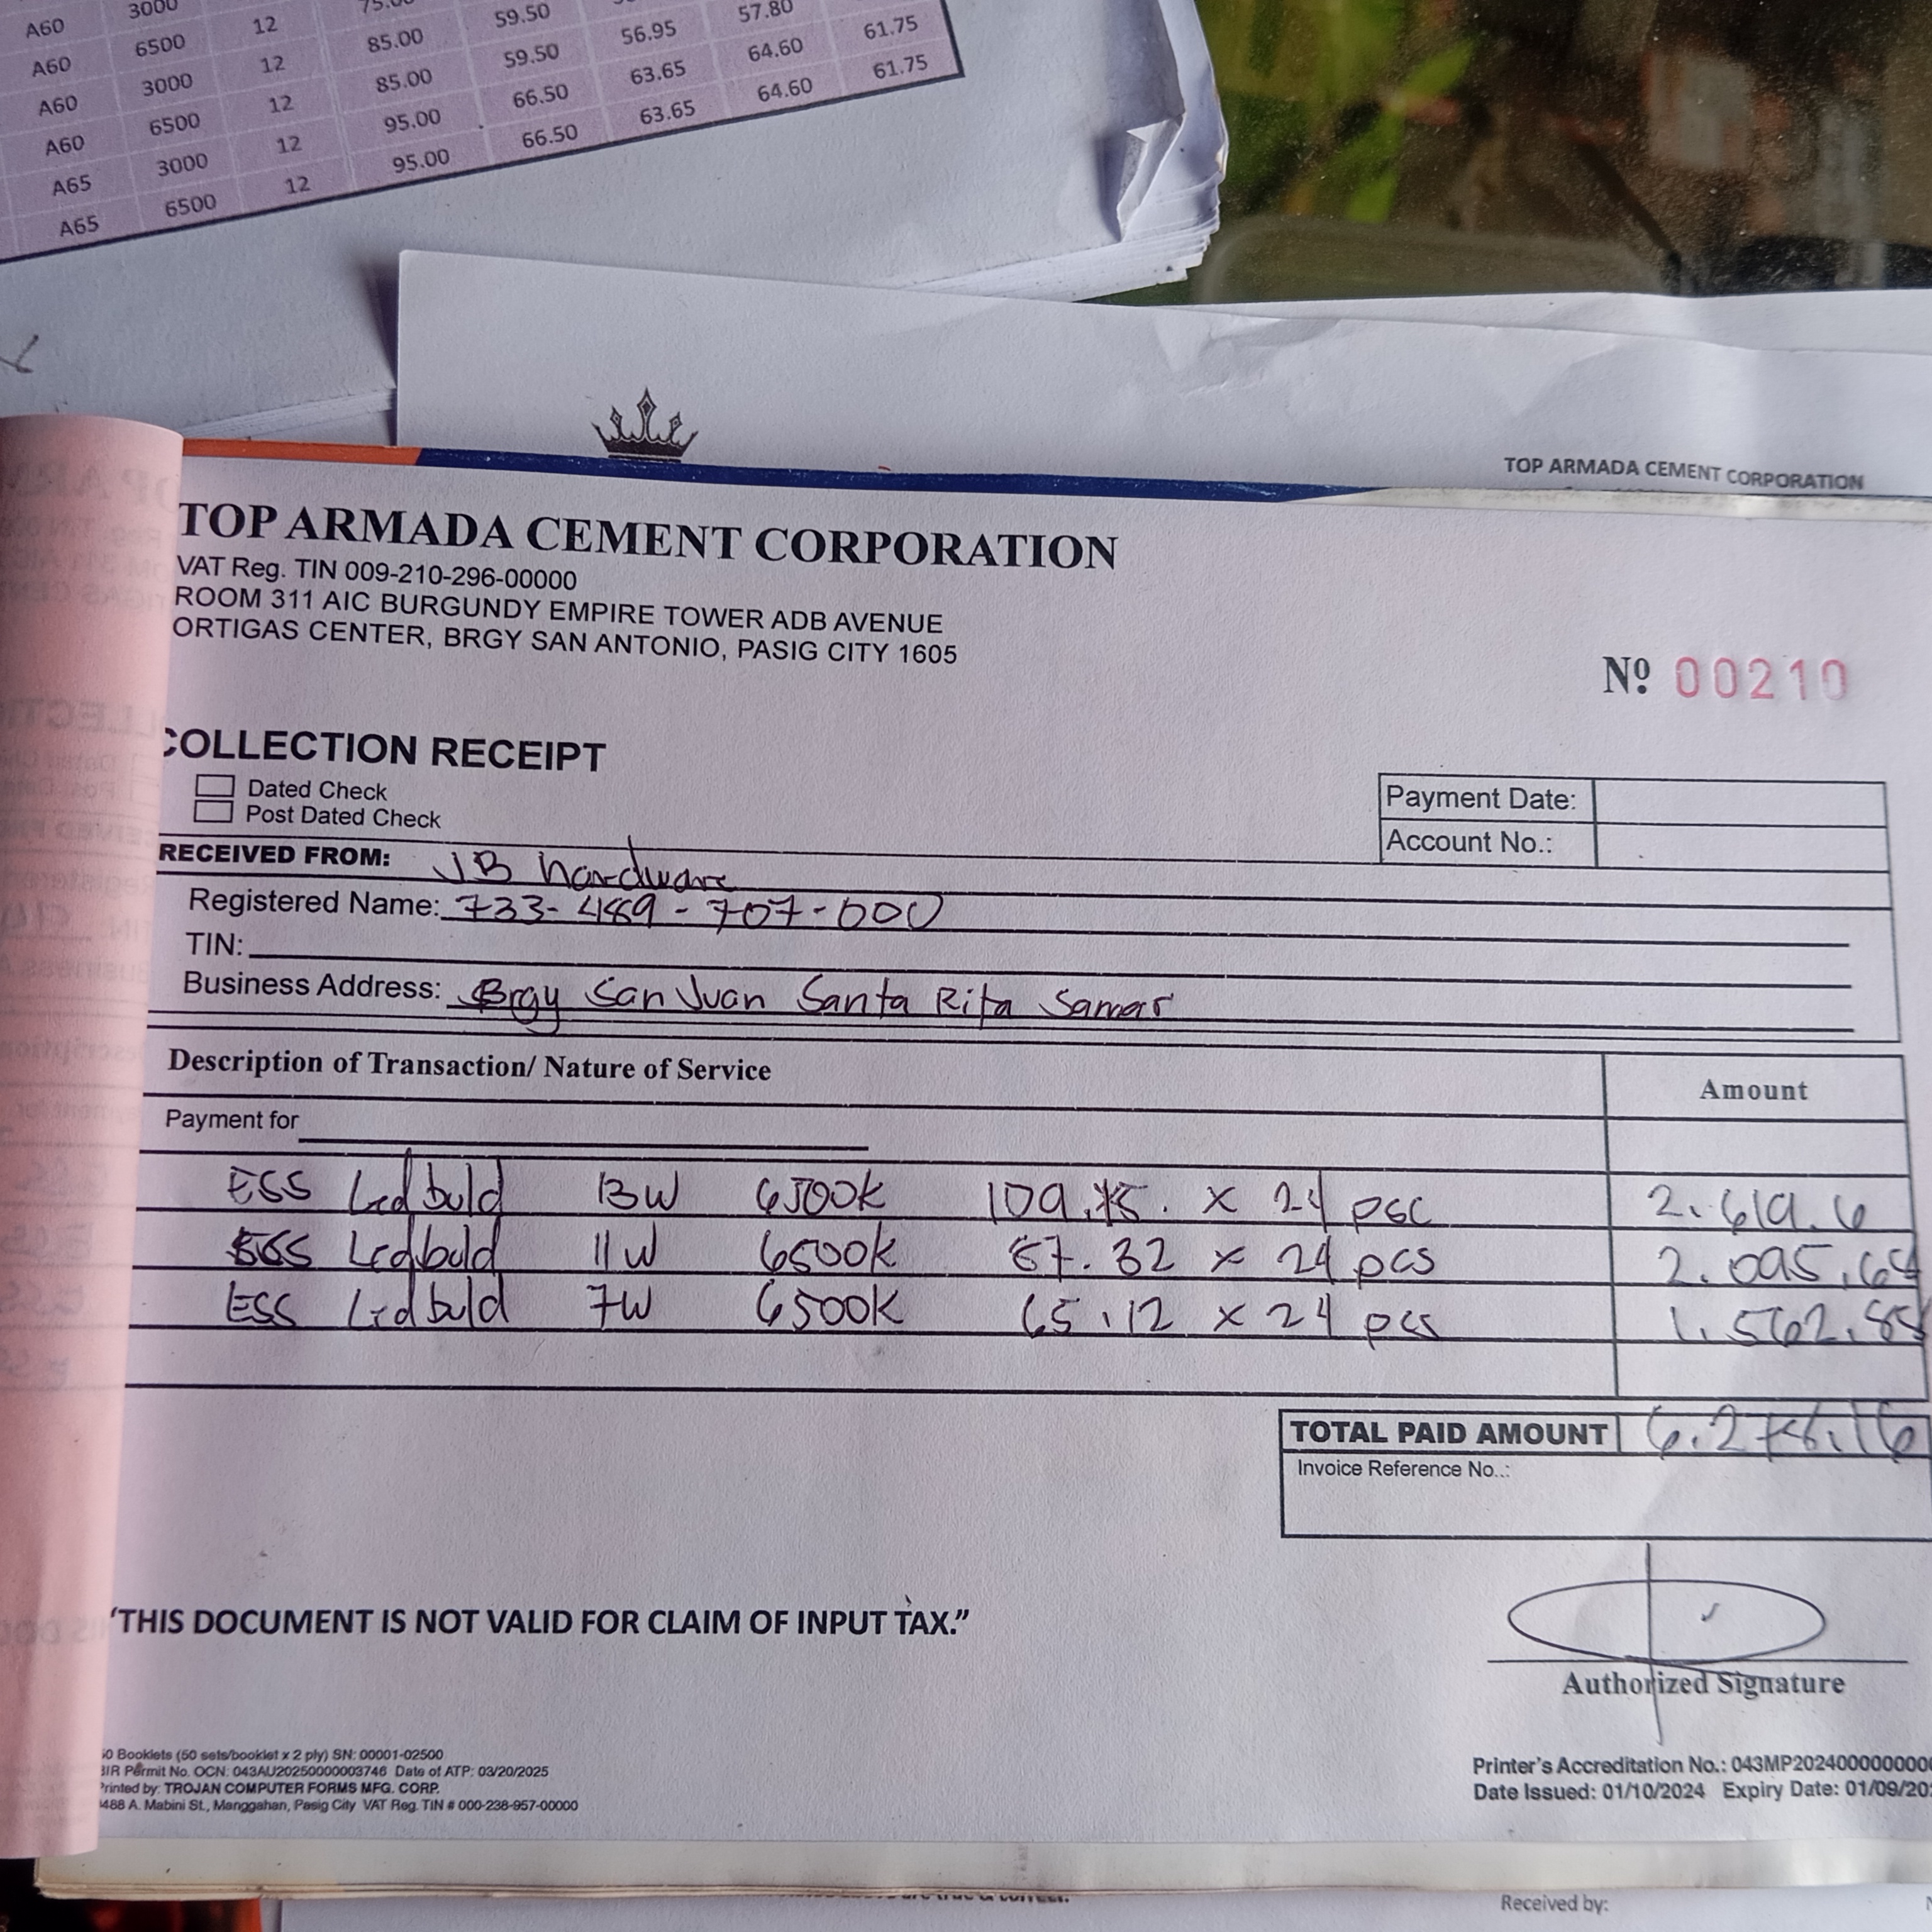 A60 3000 75.00
A60 6500 12 85.00 59.50 56.95 57.80
A60 3000 12 85.00 59.50 63.65 64.60 61.75
A60 6500 12 95.00 66.50 63.65 64.60 61.75
A65 3000 12 95.00 66.50
A65 6500 12
TOP ARMADA CEMENT CORPORATION
TOP ARMADA CEMENT CORPORATION
VAT Reg. TIN 009-210-296-00000
ROOM 311 AIC BURGUNDY EMPIRE TOWER ADB AVENUE
ORTIGAS CENTER, BRGY SAN ANTONIO, PASIG CITY 1605
Nº 00210
COLLECTION RECEIPT
Dated Check
Post Dated Check
Payment Date:
Account No.:
RECEIVED FROM: JB hardware
Registered Name: 733-489-707-000
TIN:
Business Address: Brgy San Juan Santa Rita Samar
Description of Transaction/ Nature of Service Amount
Payment for
ESS Led buld 13W 6500k 109.15. x 24 psc 2.619.6
ESS Led buld 11W 6500k 87.32 x 24 pcs 2.095.68
ESS Led buld 7W 6500k 65.12 x 24 pcs 1.562.88
TOTAL PAID AMOUNT 6.278.16
Invoice Reference No..:
"THIS DOCUMENT IS NOT VALID FOR CLAIM OF INPUT TAX."
Authorized Signature
50 Booklets (50 sets/booklet x 2 ply) SN: 00001-02500
BIR Permit No. OCN: 043AU20250000003746 Date of ATP: 03/20/2025
Printed by: TROJAN COMPUTER FORMS MFG. CORP.
488 A. Mabini St., Manggahan, Pasig City VAT Reg. TIN # 000-238-957-00000
Printer's Accreditation No.: 043MP2024000000000
Date Issued: 01/10/2024 Expiry Date: 01/09/20
Received by: